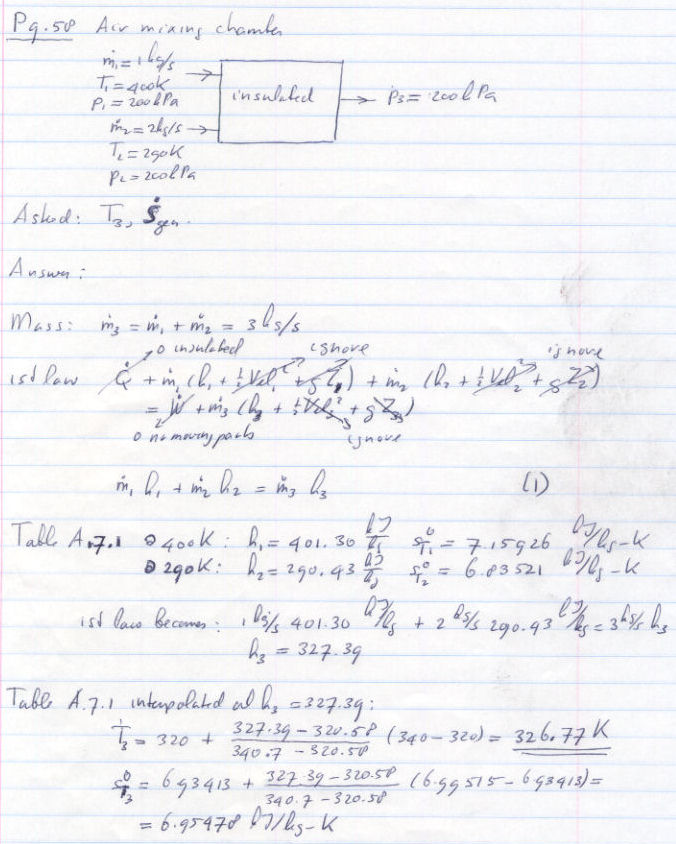 P9.58 Air mixing chamber
ṁ₁ = 1 kg/s
T₁ = 400K
P₁ = 200 kPa
insulated
P₃ = 200 kPa
ṁ₂ = 2 kg/s
T₂ = 290K
P₂ = 200 kPa
Asked: T₃, Ṡgen.
Answer:
Mass: ṁ₃ = ṁ₁ + ṁ₂ = 3 kg/s
0 insulated ignore ignore
1st law Q̇ + ṁ₁ (h₁ + ½Vel₁² + gZ₁) + ṁ₂ (h₂ + ½Vel₂² + gZ₂)
= Ẇ + ṁ₃ (h₃ + ½Vel₃² + gZ₃)
0 no moving parts ignore
ṁ₁ h₁ + ṁ₂ h₂ = ṁ₃ h₃ (1)
Table A.7.1 @ 400K: h₁ = 401.30 kJ/kg s°T₁ = 7.15926 kJ/kg-K
@ 290K: h₂ = 290.43 kJ/kg s°T₂ = 6.83521 kJ/kg-K
1st law becomes: 1 kg/s 401.30 kJ/kg + 2 kg/s 290.43 kJ/kg = 3 kg/s h₃
h₃ = 327.39
Table A.7.1 interpolated at h₃ = 327.39:
T₃ = 320 + (327.39 - 320.58)/(340.7 - 320.58) (340 - 320) = 326.77 K
s°T₃ = 6.93413 + (327.39 - 320.58)/(340.7 - 320.58) (6.99515 - 6.93413) =
= 6.95478 kJ/kg-K